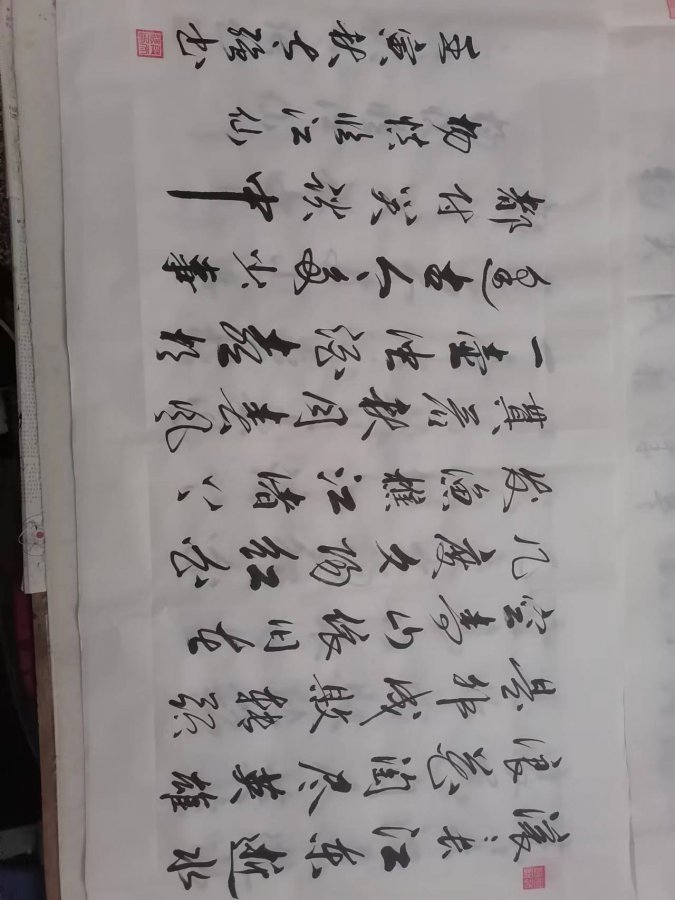 滚滚长江东逝水
浪花淘尽英雄
是非成败转头
空青山依旧在
几度夕阳红白
发渔樵江渚上
惯看秋月春风
一壶浊酒喜相
逢古今多少事
都付笑谈中
杨慎临江仙
壬寅秋强书